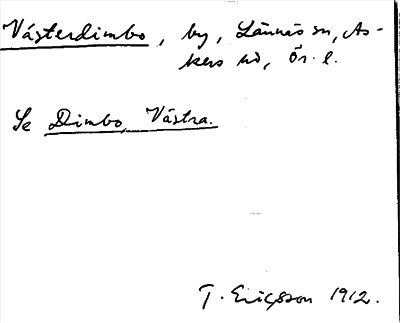 Västerdimbo, by, Lännäs sn, As-
kers hd, Ör. l.
Se Dimbo, Västra.
T. Ericsson 1912.